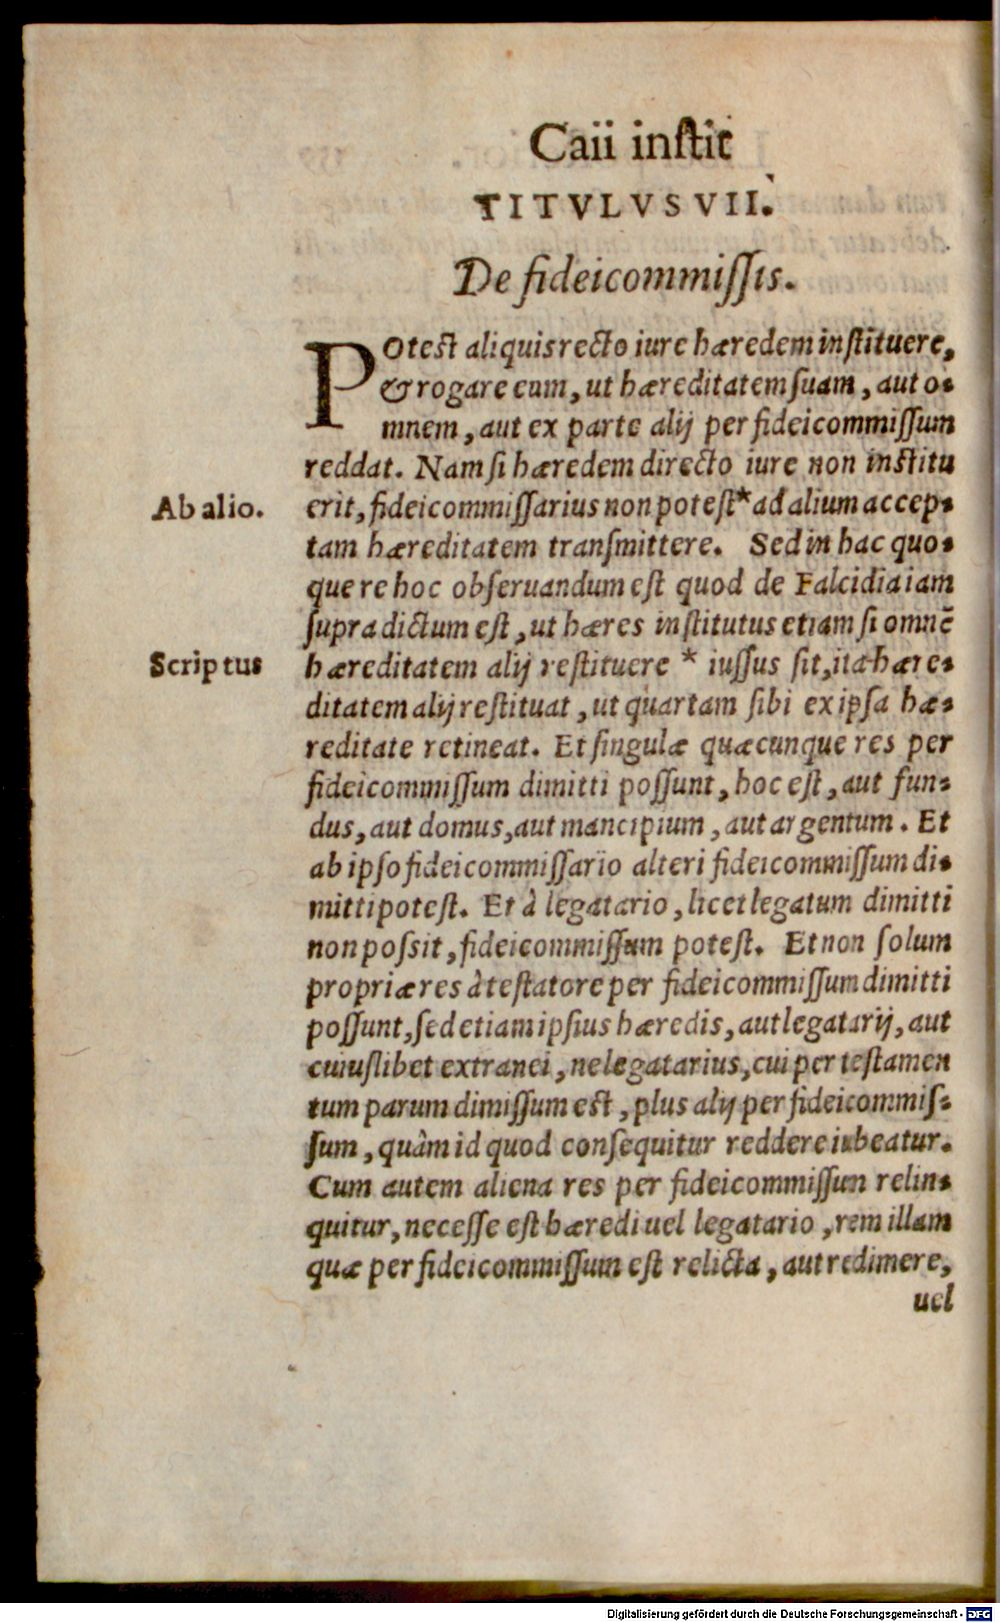 Caii instit
TITVLVS VII.
De fideicommissis.
POtest aliquis recto iure hæredem instituere,
& rogare eum, ut hæreditatem suam, aut o-
mnem, aut ex parte alij per fideicommissum
reddat. Nam si hæredem directo iure non institu
Ab alio. erit, fideicommissarius non potest * ad alium accep-
tam hæreditatem transmittere. Sed in hac quo-
que re hoc obseruandum est quod de Falcidia iam
supra dictum est, ut hæres institutus etiam si omnē
Scriptus hæreditatem alij restituere * iussus sit, ita hære-
ditatem alij restituat, ut quartam sibi ex ipsa hæ-
reditate retineat. Et singulæ quæcunque res per
fideicommissum dimitti possunt, hoc est, aut fun-
dus, aut domus, aut mancipium, aut argentum. Et
ab ipso fideicommissario alteri fideicommissum di-
mitti potest. Et à legatario, licet legatum dimitti
non possit, fideicommissum potest. Et non solum
propriæ res à testatore per fideicommissum dimitti
possunt, sed etiam ipsius hæredis, aut legatarij, aut
cuiuslibet extranei, ne legatarius, cui per testamen
tum parum dimissum est, plus alij per fideicommis-
sum, quàm id quod consequitur reddere iubeatur.
Cum autem aliena res per fideicommissun relin-
quitur, necesse est hæredi uel legatario, rem illam
quæ per fideicommissum est relicta, aut redimere,
uel
Digitalisierung gefördert durch die Deutsche Forschungsgemeinschaft - DFG